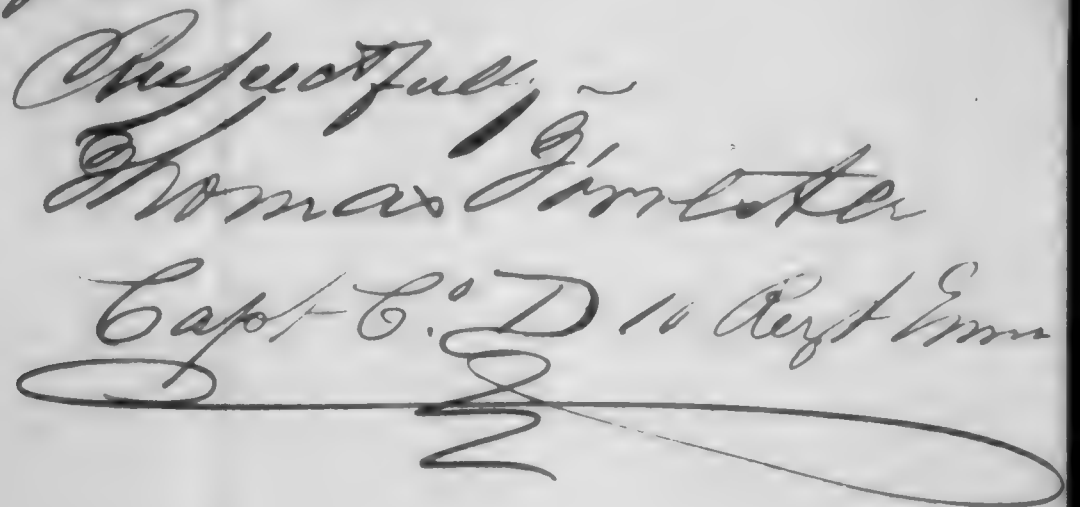 Respectfully
Thomas Forrester
Capt Co D 10 Regt Tenn